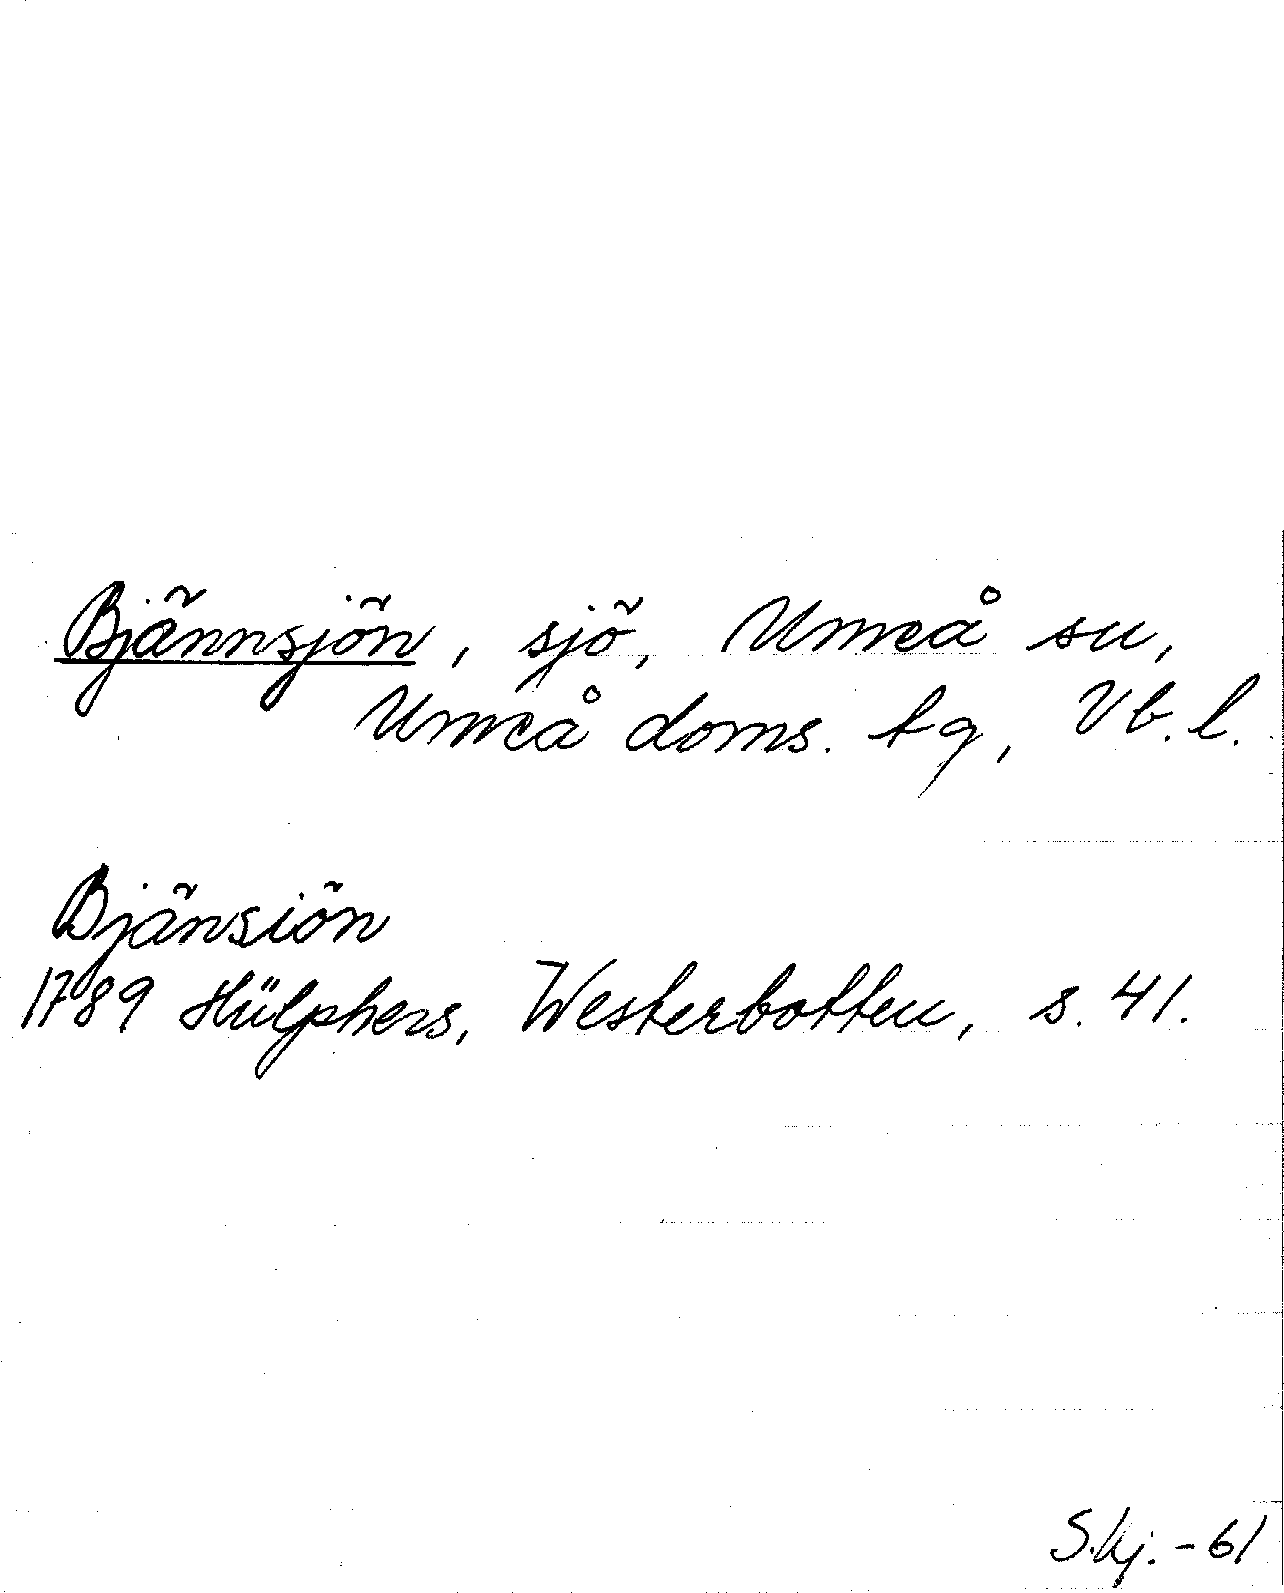 Bjännsjön, sjö, Umeå su,
Umeå doms. tg, Vb. l.
Bjänsiön
1789 Hülphers, Westerbotten, s. 41.
S.Kj. -61